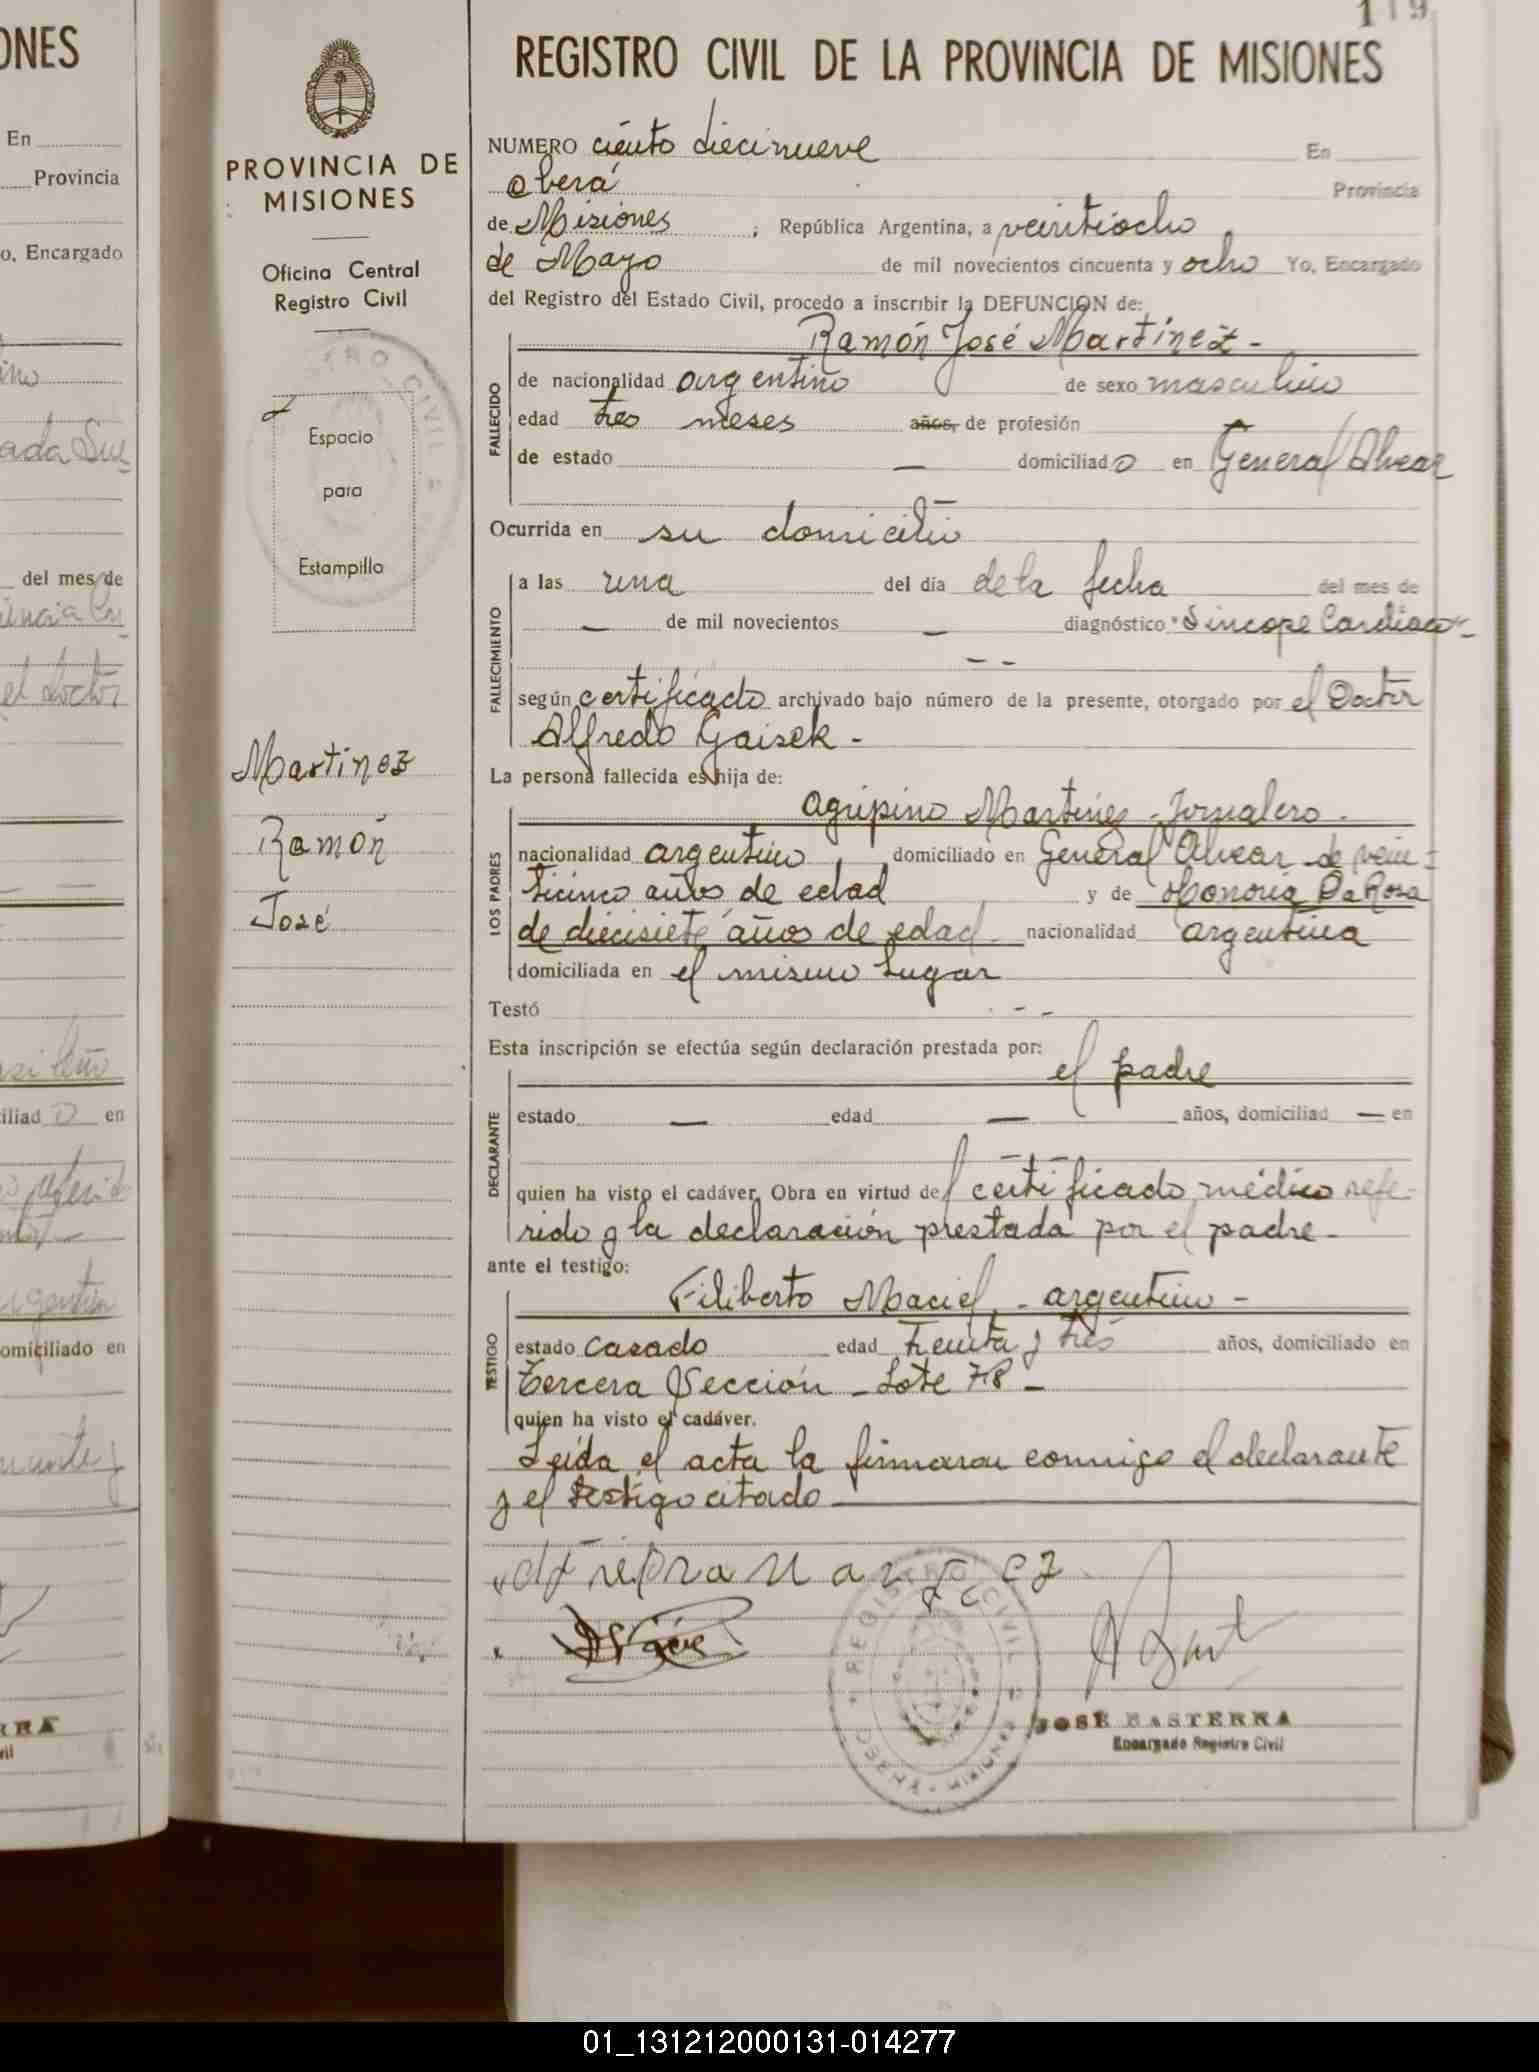 ONES
En
Provincia
o, Encargado
ada Su
del mes de
el doctor
iliad o en
argentin
omiciliado en
RRA
vil
PROVINCIA DE
MISIONES
Oficina Central
Registro Civil
REGISTRO CIVIL
Espacio
para
Estampilla
Martinez
Ramón
José
119
REGISTRO CIVIL DE LA PROVINCIA DE MISIONES
NUMERO ciento diecinueve En
oberá Provincia
de Misiones ; República Argentina, a veintiocho
de Mayo de mil novecientos cincuenta y ocho Yo, Encargado
del Registro del Estado Civil, procedo a inscribir la DEFUNCION de:
Ramón José Martínez -
FALLECIDO
de nacionalidad argentino de sexo masculino
edad tres meses años, de profesión
de estado — domiciliado en General Alvear
Ocurrida en su domicilio
FALLECIMIENTO
a las una del día de la fecha del mes de
— de mil novecientos — diagnóstico Sincope Cardiaco -
- -
según certificado archivado bajo número de la presente, otorgado por el Doctor
Alfredo Gaisek -
La persona fallecida es hija de:
LOS PADRES
Agripino Martinez - Jornalero -
nacionalidad argentino domiciliado en General Alvear de vein-
ticinco años de edad y de Honoria Da Rosa
de diecisiete años de edad nacionalidad argentina
domiciliada en el mismo lugar
Testó - -
Esta inscripción se efectúa según declaración prestada por:
el padre
DECLARANTE
estado — edad — años, domiciliad — en
quien ha visto el cadáver. Obra en virtud del certificado médico refe-
rido y la declaración prestada por el padre -
ante el testigo:
TESTIGO
Filiberto Maciel - argentino -
estado casado edad treinta y tres años, domiciliado en
Tercera Sección - Lote 78 -
quien ha visto el cadáver.
Leída el acta la firmaron conmigo el declarante
y el testigo citado
REGISTRO CIVIL
MISIONES
JOSÉ BASTERRA
Encargado Registro Civil
01_131212000131-014277